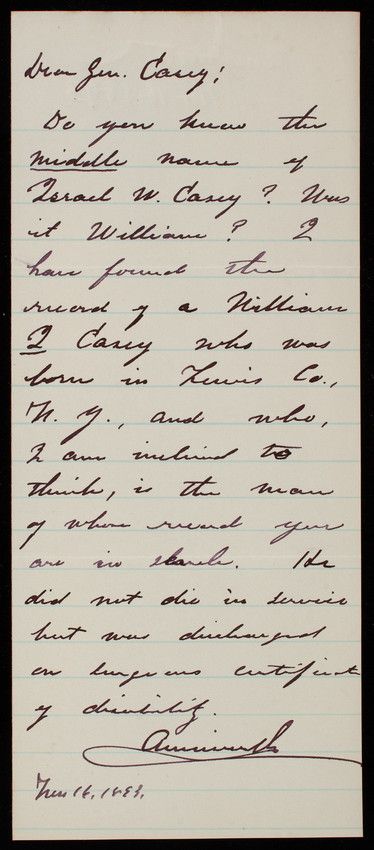 Dear Gen. Casey;
Do you know the
middle name of
Israel W. Casey? Was
it William? I
have found the
record of a William
I Casey who was
born in Lewis Co.,
N. Y., and who,
I am inclined to
think, is the man
of whose record you
are in search. He
did not die in service
but was discharged
on surgeons certificate
of disability.
Ainsworth
16, 1893.